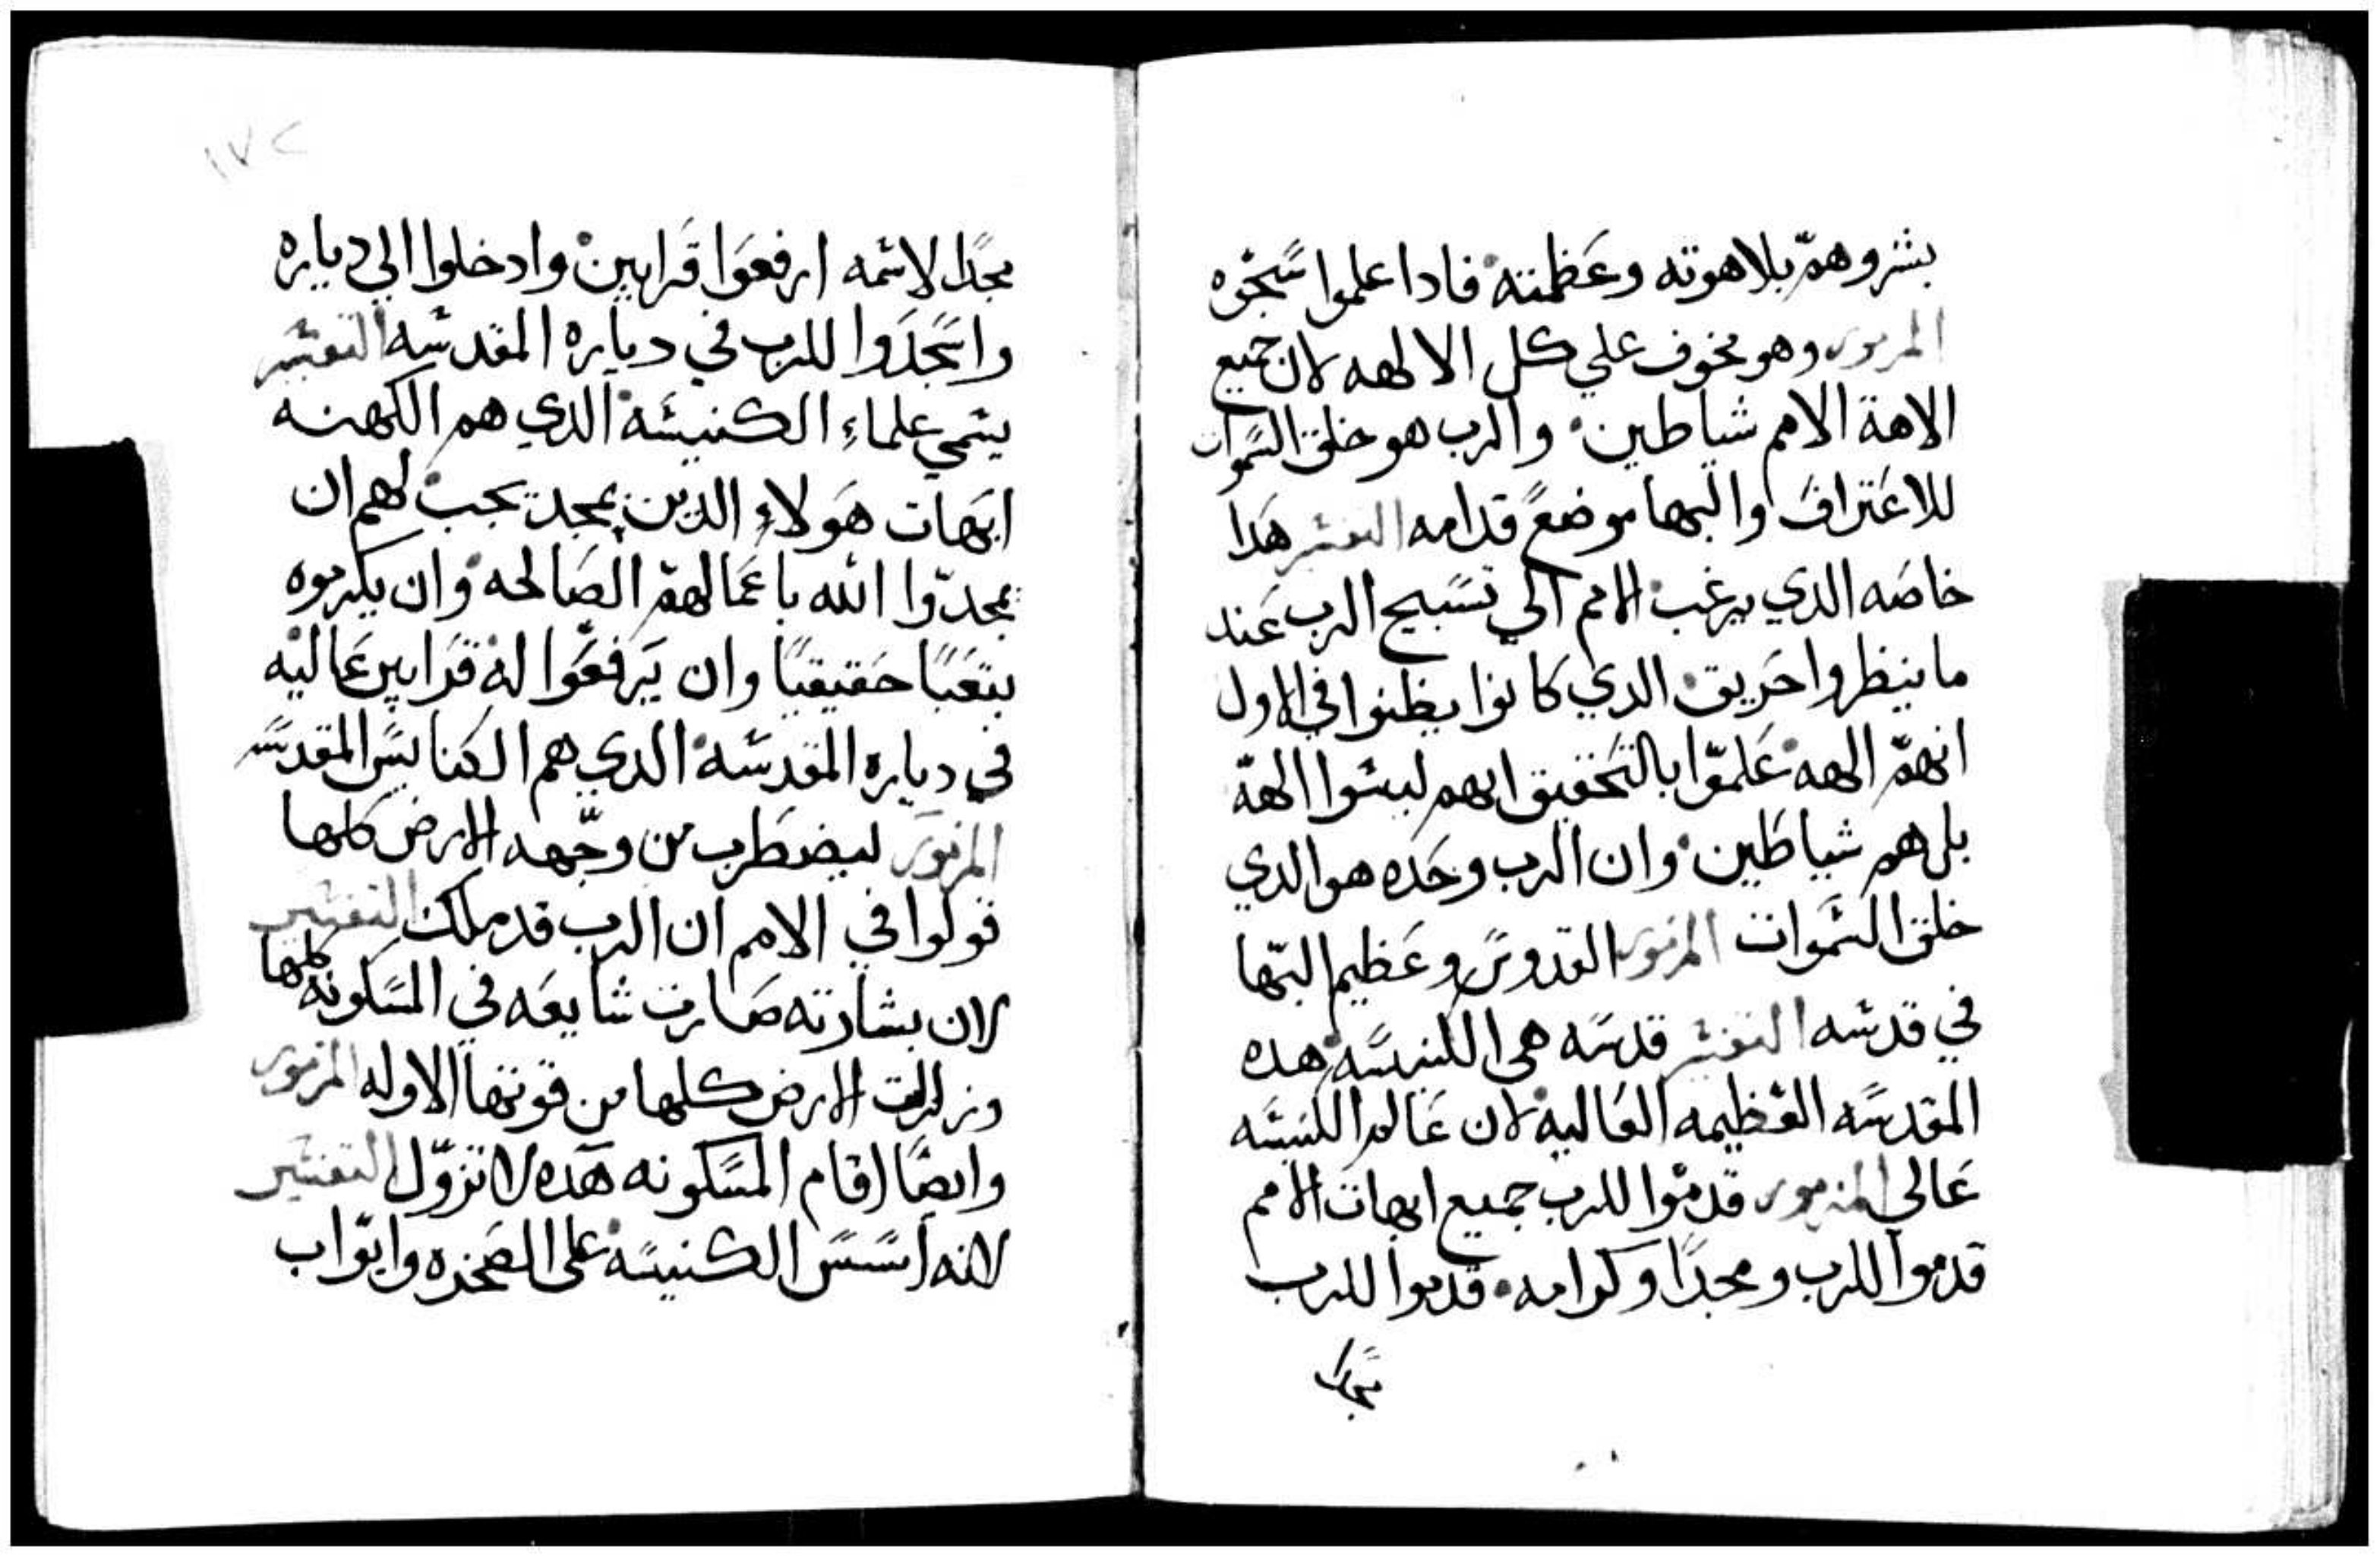 بشروهم بلاهوته وعظمته فادا علموا سبحوه
المزمور وهو مخوف علي كل الالهه لان جميع
الاهة الامم شياطين والرب هو خلق السموات
للاعتراف والبها موضع قدامه التفسير هدا
خاصه الدي يرغب الامم الي تسبيح الرب عند
ما ينظروا حريق الدي كانوا يظنوا في الاول
انهم الهه علموا بالتحقيق انهم ليسوا الهة
بل هم شياطين وان الرب وحده هو الدي
خلق السموات المزمور القدوس وعظيم البها
في قدسه التفسير قدسه هي الكنيسه هده
المقدسه العظيمه العاليه لان عالم الكنيسه
عالي المزمور قدموا للرب جميع ابهات الامم
قدموا للرب ومجدا وكرامه قدموا للرب
مجدا
١٧٢
مجدا لاسمه ارفعوا قرابين وادخلوا الي دياره
واسجدوا للرب في دياره المقدسه التفسير
يسمي علماء الكنيسه الدي هم الكهنه
ابهات هولاء الدين بمجد يجب لهم ان
يمجدوا الله باعمالهم الصالحه وان يكرموه
بتعبا حقيقيا وان يرفعوا له قرابين عاليه
في دياره المقدسه الدي هم الكنايس المقدسه
المزمور ليضطرب من وجهه الارض كلها
قولوا في الامم ان الرب قد ملك التفسير
لان بشارته صارت شايعه في المسكونه كلها
وزلزلت الارض كلها من قوتها الاوله المزمور
وايضا اقام المسكونه هده لا تزول التفسير
لانه اسس الكنيسه على الصخره وابواب